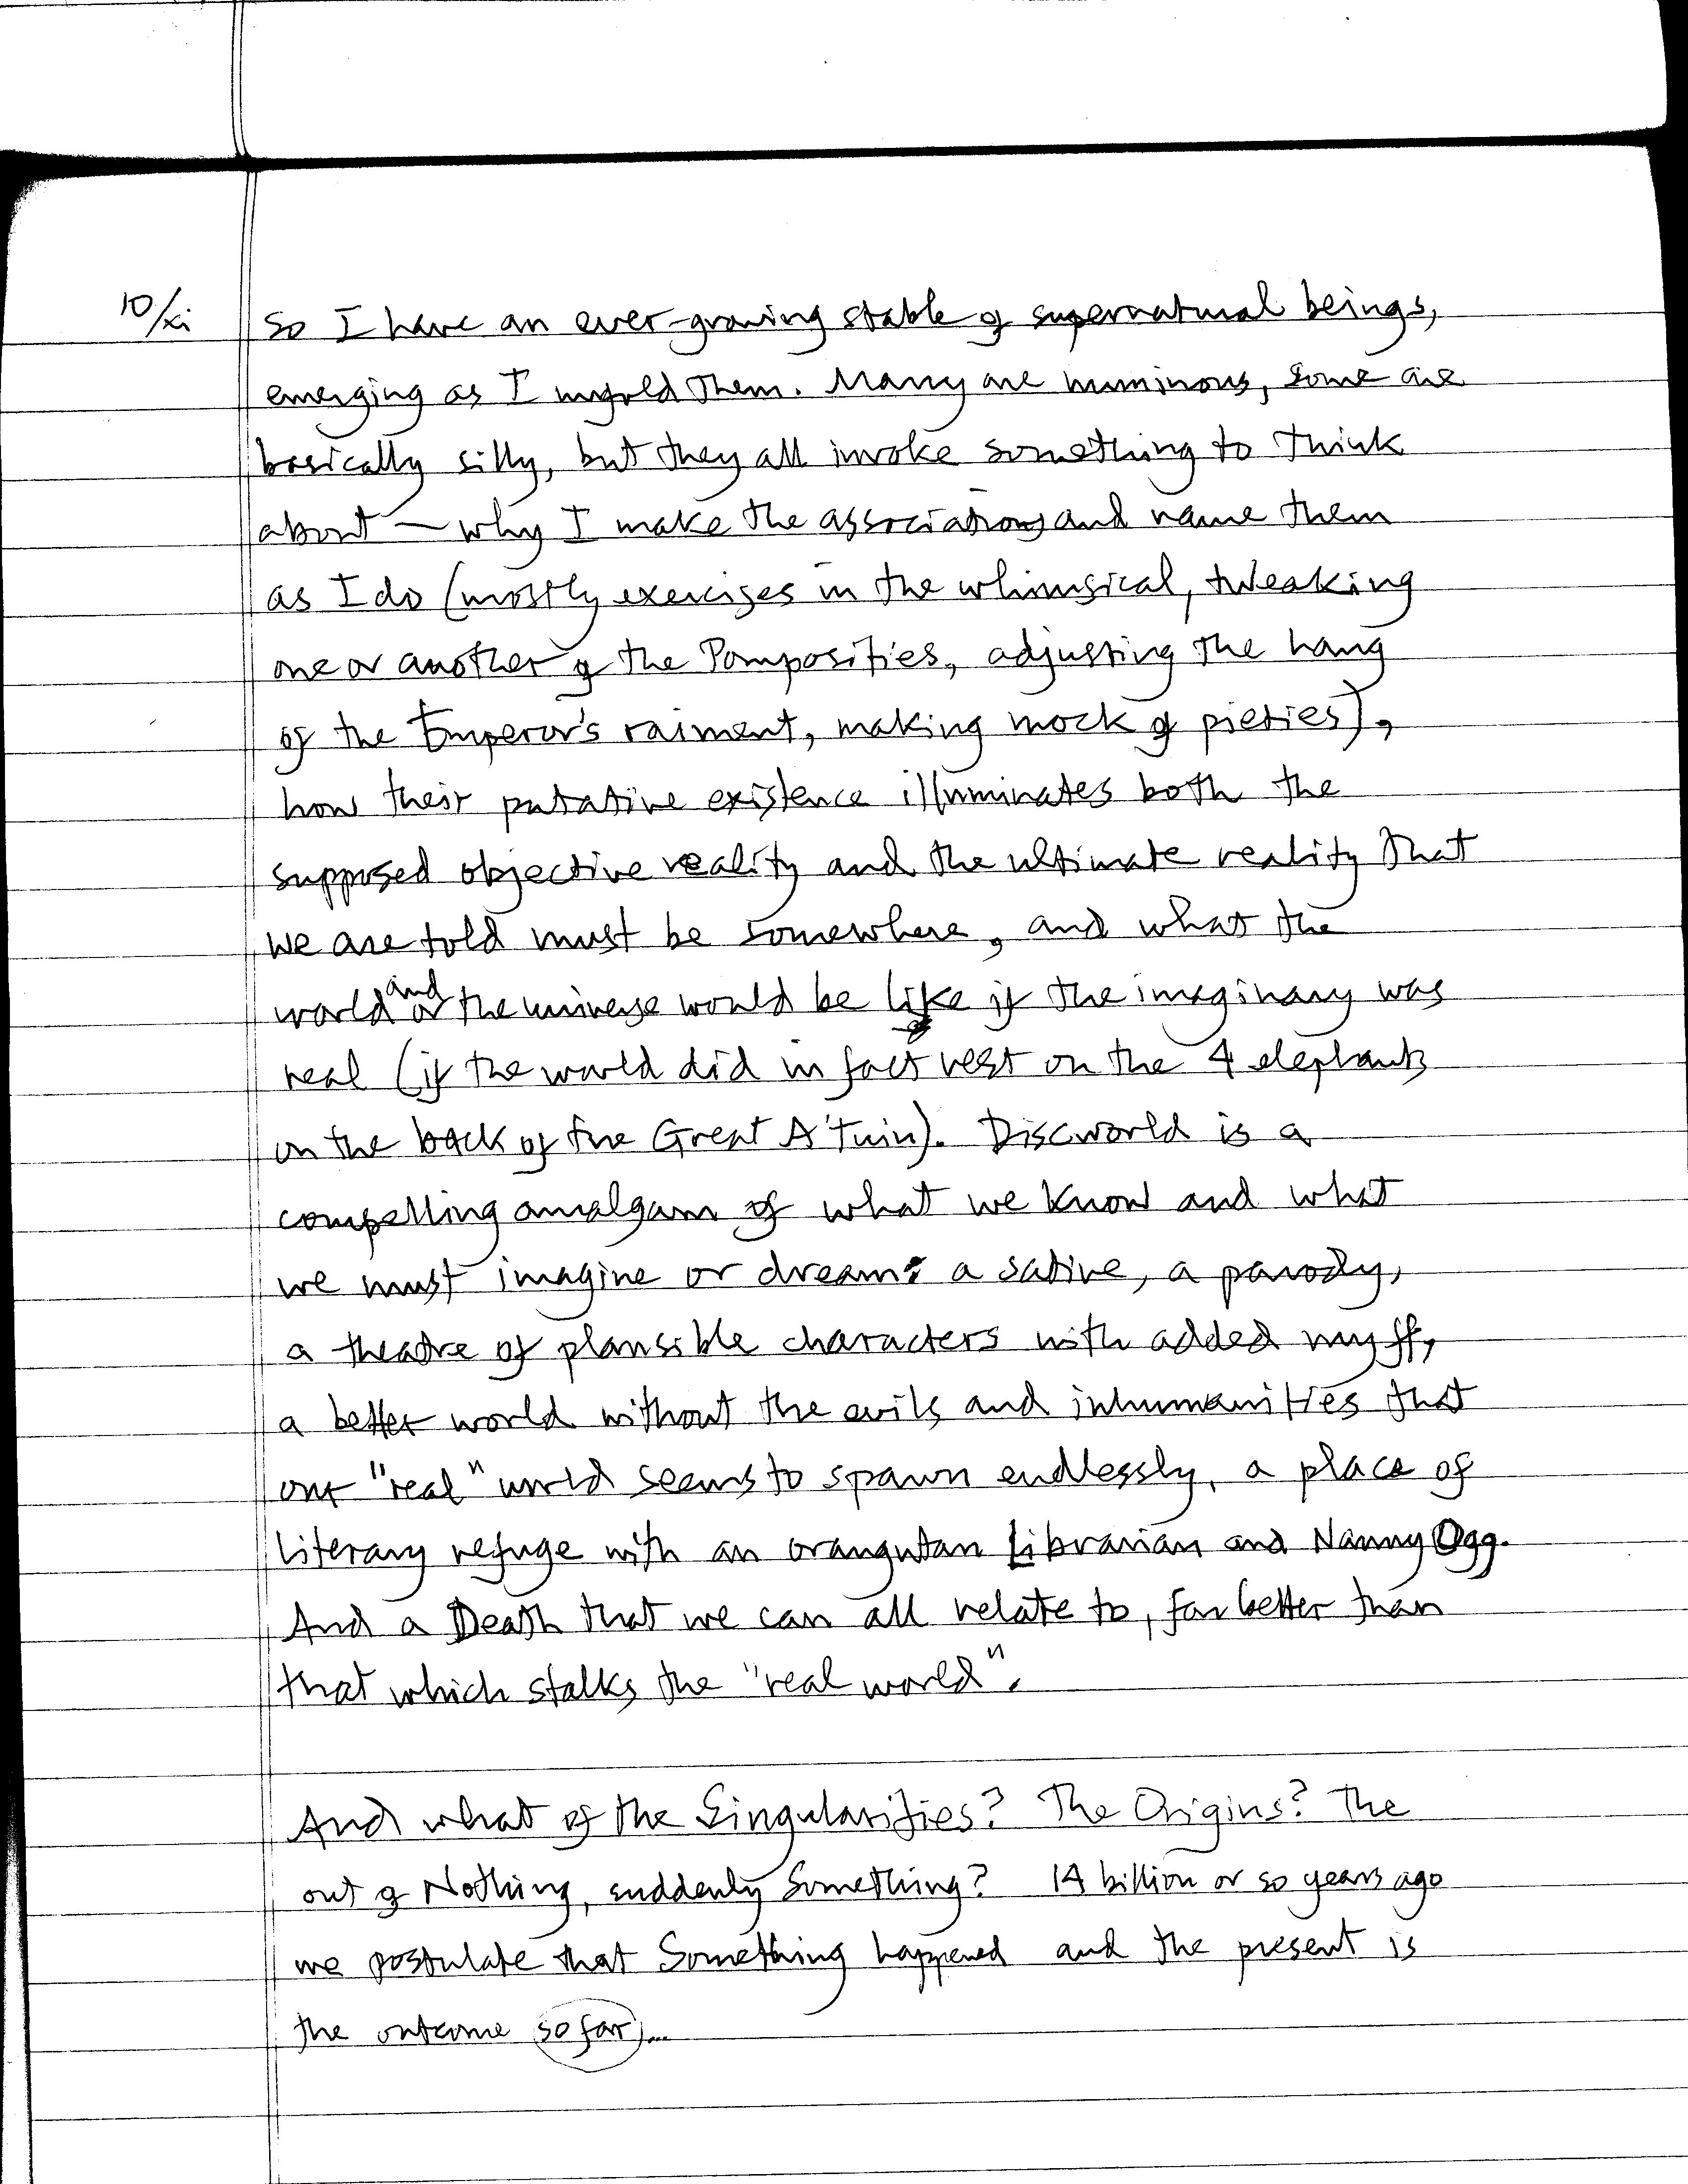 10/xi So I have an ever-growing stable of supernatural beings,
emerging as I unfold them. Many are numinous, some are
basically silly, but they all invoke something to think
about — why I make the associations and name them
as I do (mostly exercises in the whimsical, tweaking
one or another of the Pomposities, adjusting the hang
of the Emperor's raiment, making mock of pieties),
how their putative existence illuminates both the
supposed objective reality and the ultimate reality that
we are told must be somewhere, and what the
world and or the universe would be like if the imaginary was
real (if the world did in fact rest on the 4 elephants
on the back of the Great A'Tuin). Discworld is a
compelling amalgam of what we know and what
we must imagine or dream: a satire, a parody,
a theatre of plausible characters with added myff,
a better world without the evils and inhumanities that
our "real" world seems to spawn endlessly, a place of
literary refuge with an orangutan Librarian and Nanny Ogg.
And a Death that we can all relate to, far better than
that which stalks the "real world".
And what of the Singularities? The Origins? The
out of Nothing, suddenly Something? 14 billion or so years ago
we postulate that Something happened and the present is
the outcome so far...